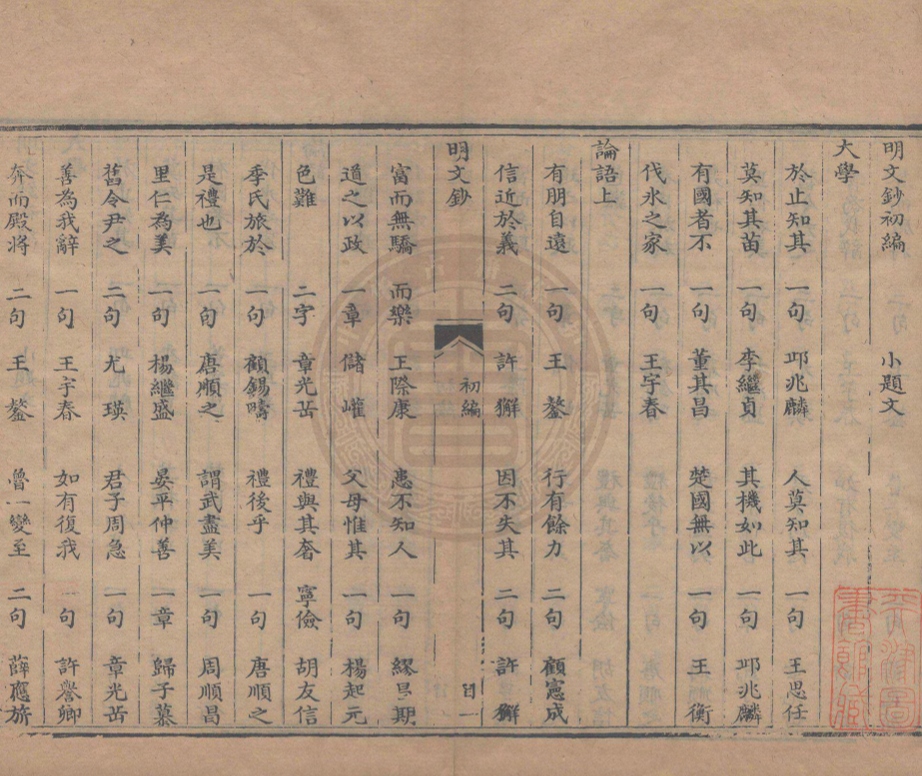 明文鈔初編 小題文
大學
於止知其 一句 邱兆麟 人莫知其 一句 王思任
莫知其苗 一句 李繼貞 其機如此 一句 邱兆麟
有國者不 一句 董其昌 楚國無以 一句 王衡
伐氷之家 一句 王宇春
論語上
有朋自遠 一句 王鏊 行有餘力 二句 顧憲成
信近於義 二句 許獬 因不失其 二句 許獬
明文鈔 初編 目 一
富而無驕 而樂 王際康 患不知人 一句 繆昌期
道之以政 一章 儲巏 父母惟其 一句 楊起元
色難 二字 章光岳 禮與其奢 寧儉 胡友信
季氏旅於 一句 顧錫疇 禮後乎 一句 唐順之
是禮也 一句 唐順之 謂武盡美 一句 周順昌
里仁為美 一句 楊繼盛 晏平仲善 一章 歸子慕
舊令尹之 二句 尤瑛 君子周急 一句 章光岳
善為我辭 一句 王宇春 如有復我 一句 許譽卿
奔而殿將 二句 王鏊 魯一變至 二句 薛應旂